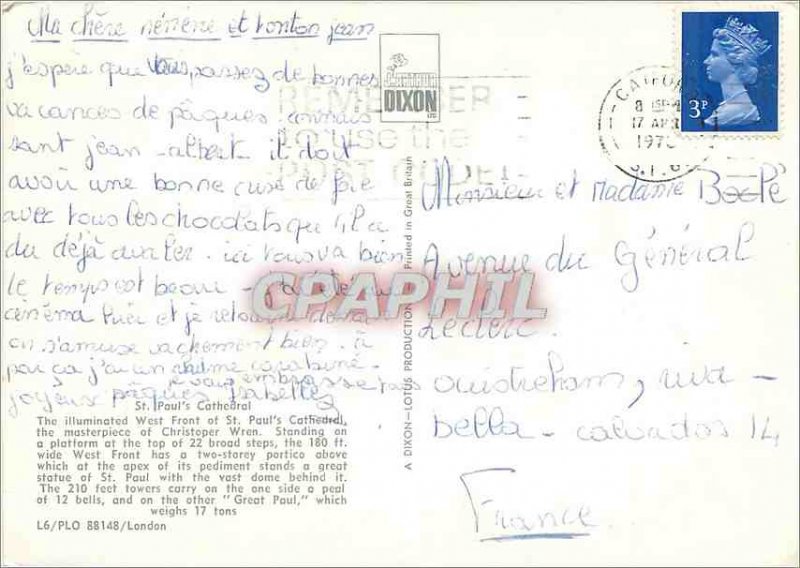 Ma chère nénène et tonton jean
j'espère que vous passez de bonnes
vacances de pâques. connais
sant jean-albert il doit
avoir une bonne crise de foie
avec tous les chocolats qu'il a
du déjà avaler. ici tous va bien
le temps est beau - j'ai été au
cinéma hier et je retourne
on s'amuse vachement bien. à
par ça j'ai un rhume carabiné.
je vous embrasse
joyeux pâques Isabelle
St. Paul's Cathedral
The illuminated West Front of St. Paul's Cathedral,
the masterpiece of Christoper Wren. Standing on
a platform at the top of 22 broad steps, the 180 ft.
wide West Front has a two-storey portico above
which at the apex of its pediment stands a great
statue of St. Paul with the vast dome behind it.
The 210 feet towers carry on the one side a peal
of 12 bells, and on the other "Great Paul," which
weighs 17 tons
L6/PLO 88148/London
DIXON
REMEMBER
to use the
POST CODE
A DIXON—LOTUS PRODUCTION Printed in Great Britain
3P
17 APR
197
Monsieur et Madame
Avenue du Général
Leclerc.
ouistreham, riva-
bella - calvados 14
France.
CPAPHIL